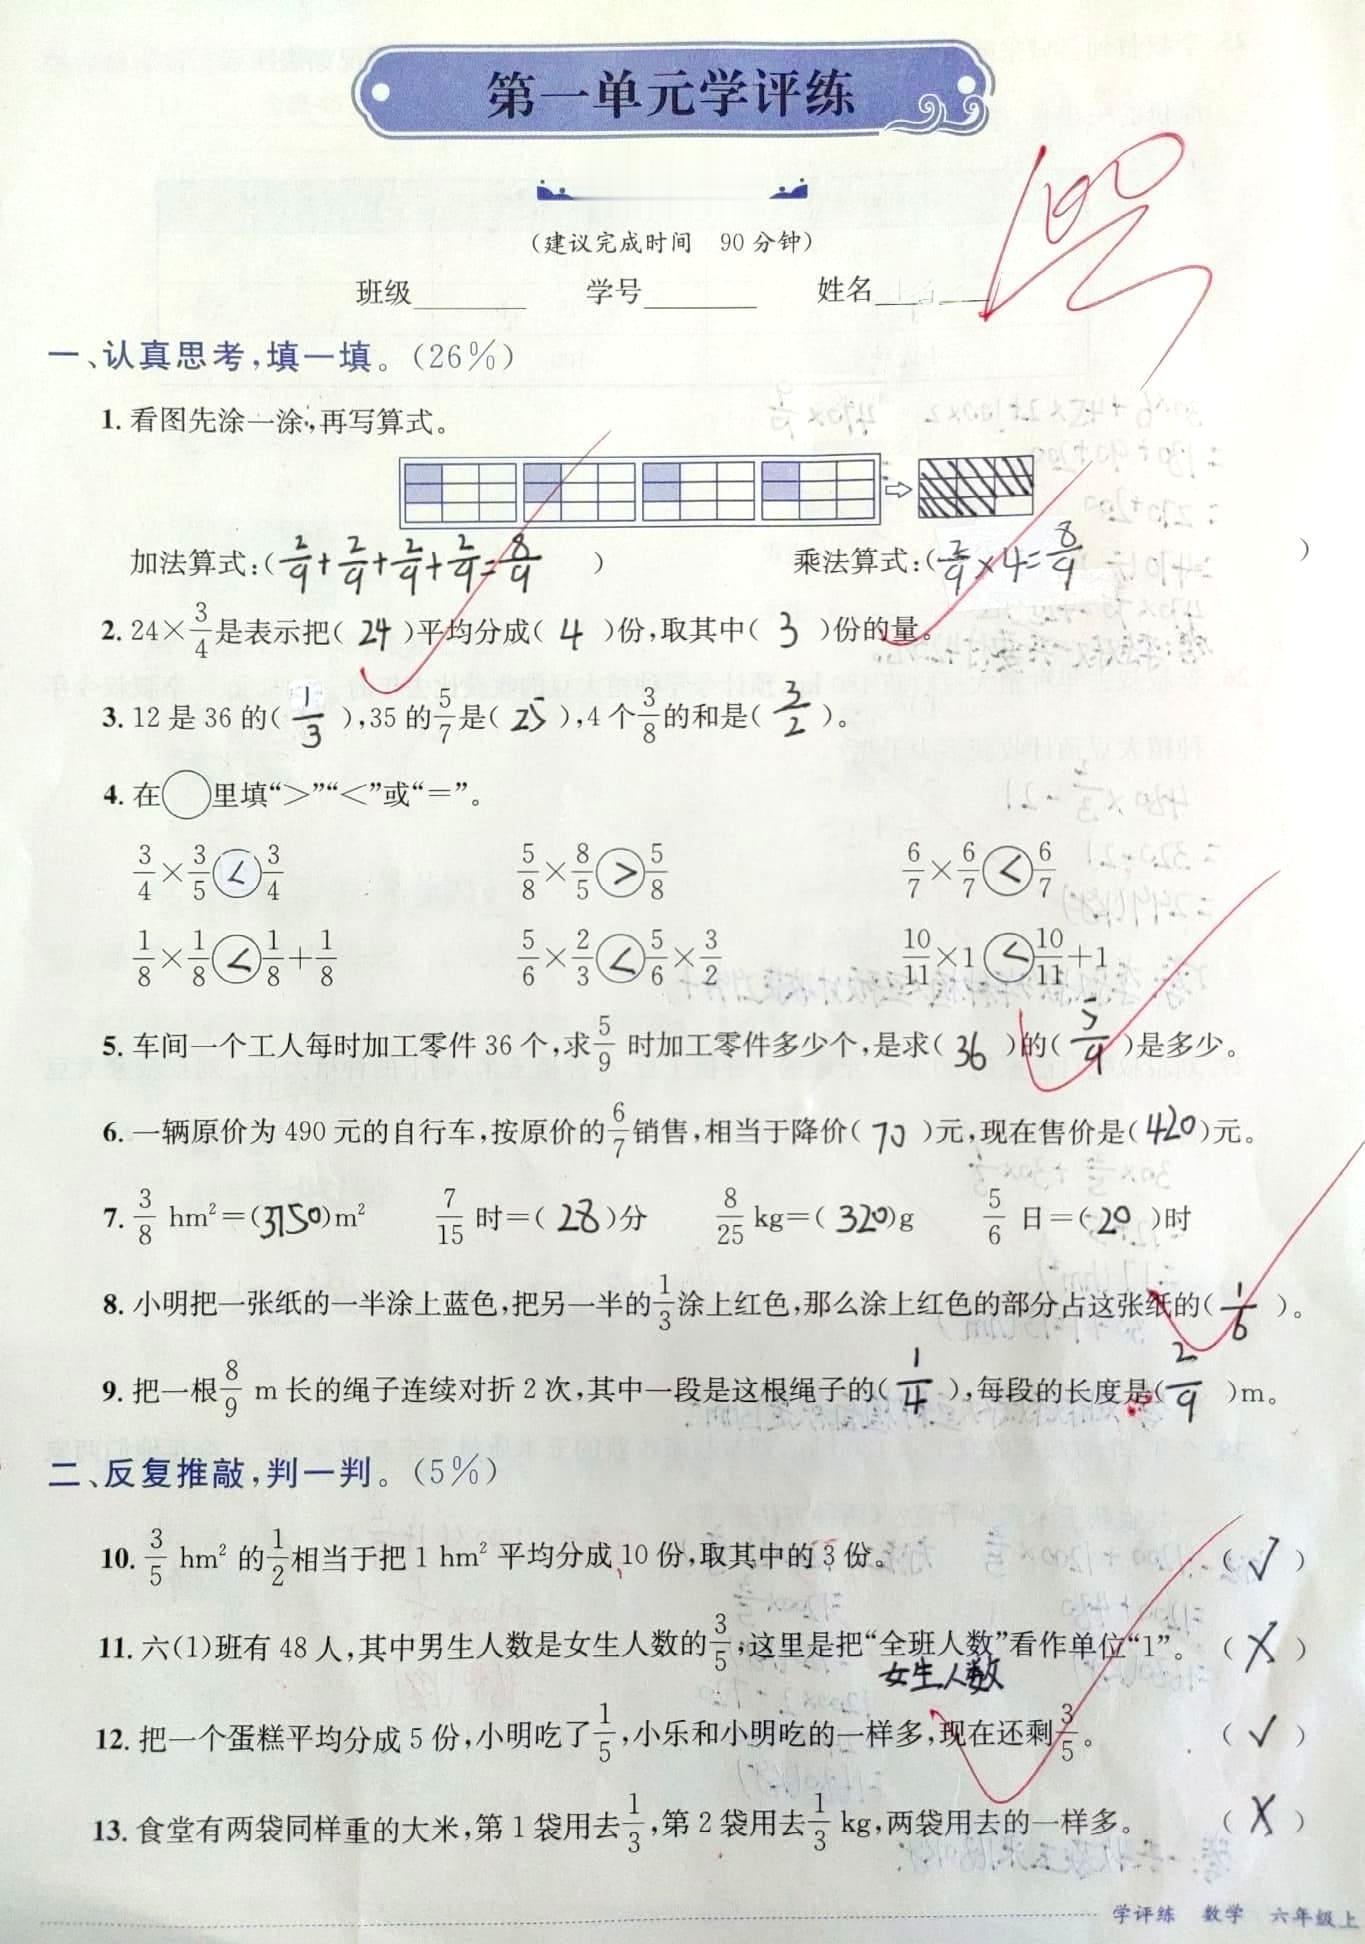 第一单元学评练
100
(建议完成时间 90分钟)
班级 学号 姓名
一、认真思考,填一填。(26%)
1. 看图先涂一涂,再写算式。
加法算式:( 2/9+2/9+2/9+2/9=8/9 ) 乘法算式:( 2/9×4=8/9 )
2. 24×3/4是表示把( 24 )平均分成( 4 )份,取其中( 3 )份的量。
3. 12是36的( 1/3 ),35的5/7是( 25 ),4个3/8的和是( 3/2 )。
4. 在○里填“>”“<”或“=”。
3/4×3/5<3/4 5/8×8/5>5/8 6/7×6/7<6/7
1/8×1/8<1/8+1/8 5/6×2/3<5/6×3/2 10/11×1<10/11+1
5. 车间一个工人每时加工零件36个,求5/9时加工零件多少个,是求( 36 )的( 5/9 )是多少。
6. 一辆原价为490元的自行车,按原价的6/7销售,相当于降价( 70 )元,现在售价是( 420 )元。
7. 3/8 hm²=(3750)m² 7/15时=( 28 )分 8/25 kg=( 320 )g 5/6日=( 20 )时
8. 小明把一张纸的一半涂上蓝色,把另一半的1/3涂上红色,那么涂上红色的部分占这张纸的( 1/6 )。
9. 把一根8/9 m长的绳子连续对折2次,其中一段是这根绳子的( 1/4 ),每段的长度是( 2/9 )m。
二、反复推敲,判一判。(5%)
10. 3/5 hm²的1/2相当于把1 hm²平均分成10份,取其中的3份。 ( √ )
11. 六(1)班有48人,其中男生人数是女生人数的3/5,这里是把“全班人数”看作单位“1”。 ( X )
女生人数
12. 把一个蛋糕平均分成5份,小明吃了1/5,小乐和小明吃的一样多,现在还剩3/5。 ( √ )
13. 食堂有两袋同样重的大米,第1袋用去1/3,第2袋用去1/3 kg,两袋用去的一样多。 ( X )
学评练 数学 六年级上